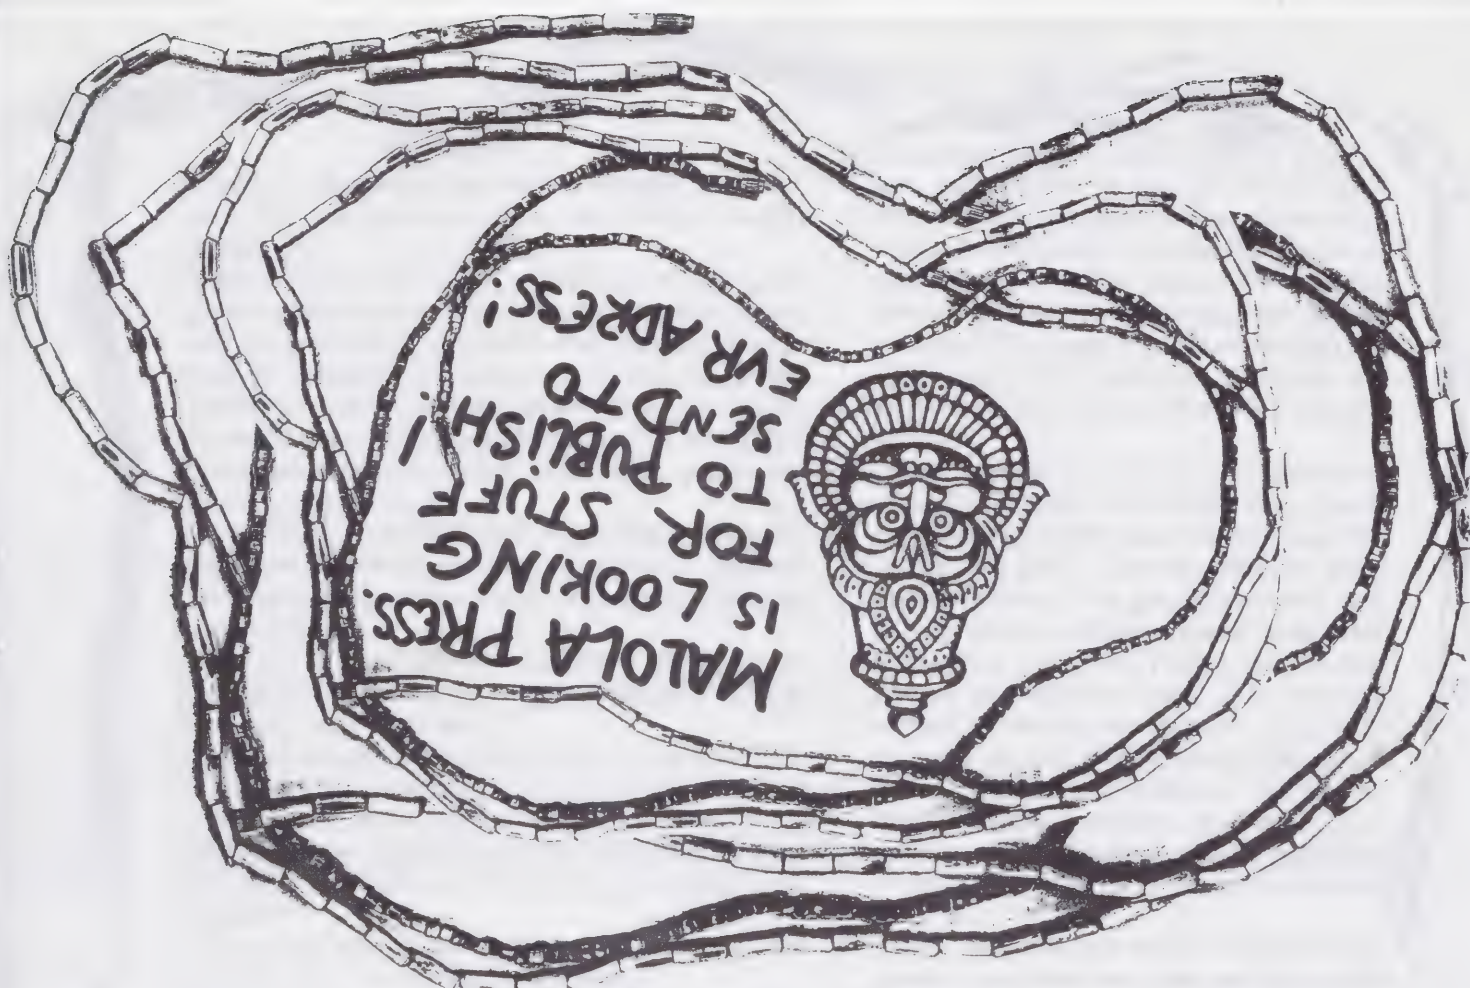 MALOLA PRESS.
IS LOOKING
FOR STUFF
TO PUBLISH!
SEND TO
EVR ADRESS!